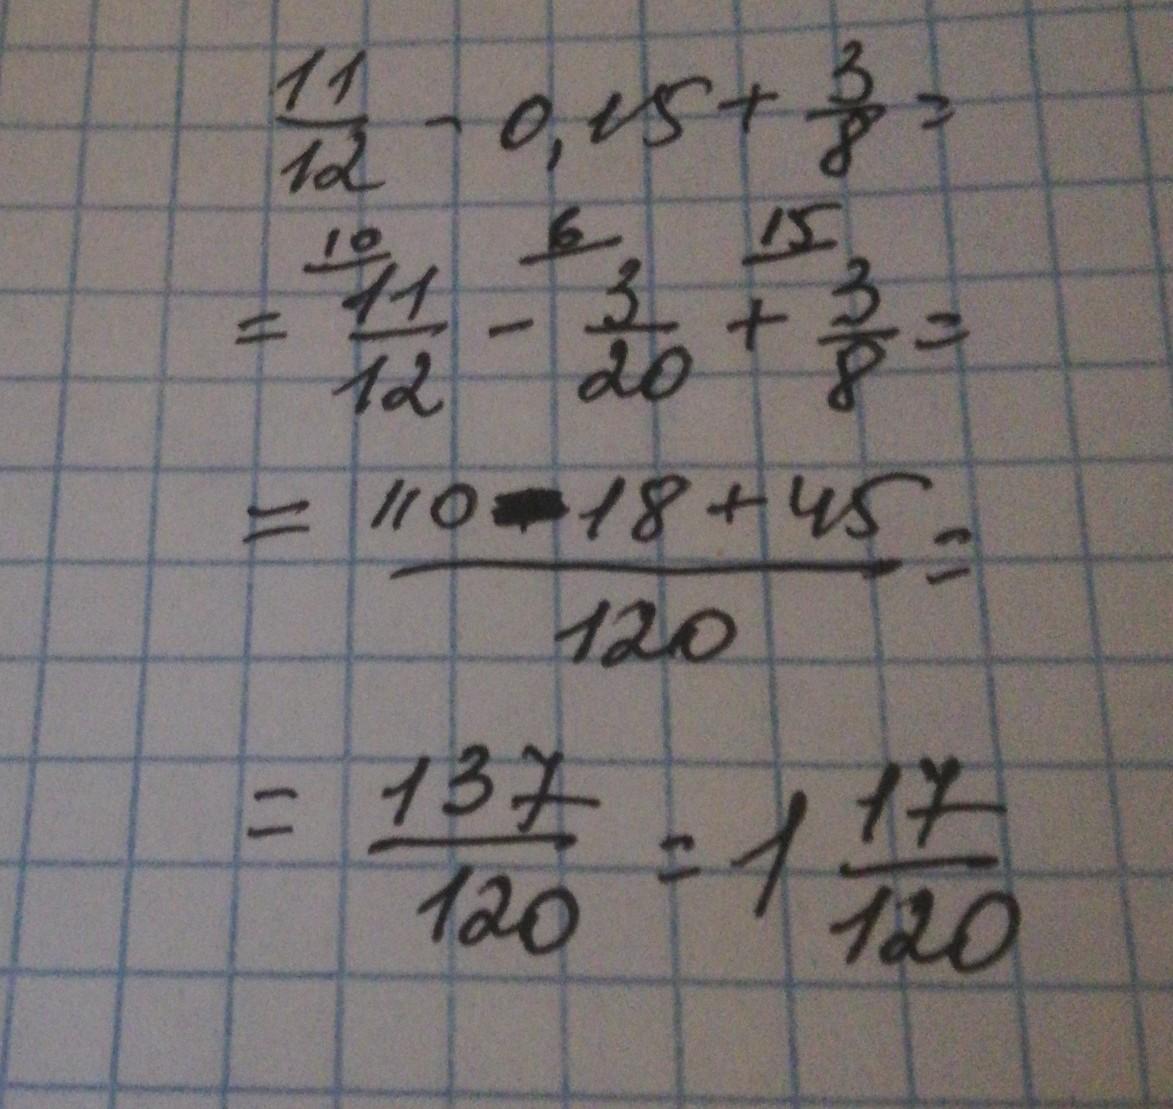 11/12 - 0,15 + 3/8 =
10 6 15
= 11/12 - 3/20 + 3/8 =
= 110 - 18 + 45 / 120 =
= 137/120 = 1 17/120